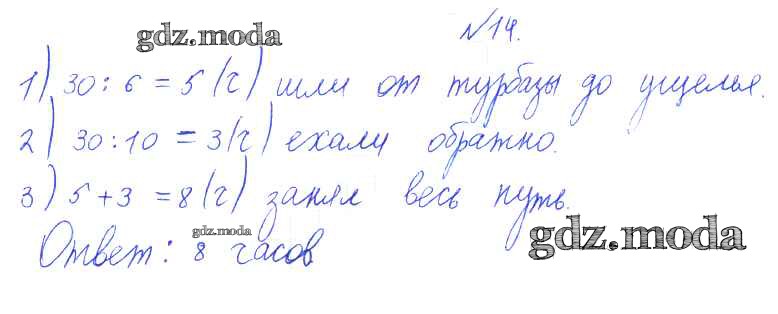 №14.
gdz.moda
1) 30 : 6 = 5 (ч) шли от турбазы до ущелья.
2) 30 : 10 = 3 (ч) ехали обратно.
3) 5 + 3 = 8 (ч) занял весь путь.
gdz.moda
Ответ: 8 часов
gdz.moda